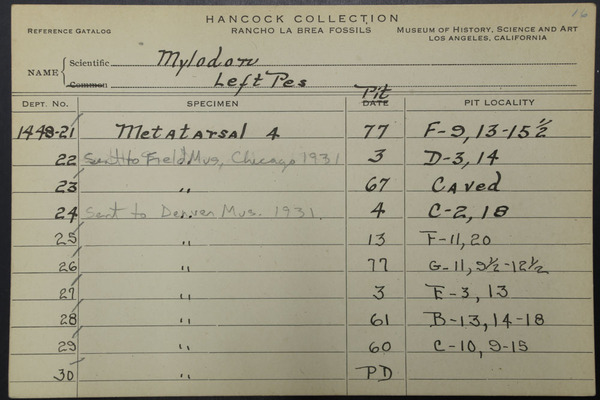 16
HANCOCK COLLECTION
REFERENCE CATALOG RANCHO LA BREA FOSSILS MUSEUM OF HISTORY, SCIENCE AND ART
LOS ANGELES, CALIFORNIA
NAME Scientific Mylodon
Common Left Pes
Pit
DEPT. NO. SPECIMEN DATE PIT LOCALITY
1448-21 Metatarsal 4 77 F-9, 13-15½
22 Sent to Field Mus, Chicago 1931 3 D-3, 14
23 " 67 Caved
24 Sent to Denver Mus. 1931. 4 C-2, 18
25 " 13 F-11, 20
26 " 77 G-11, 9½-12½
27 " 3 E-3, 13
28 " 61 B-13, 14-18
29 " 60 C-10, 9-15
30 " PD